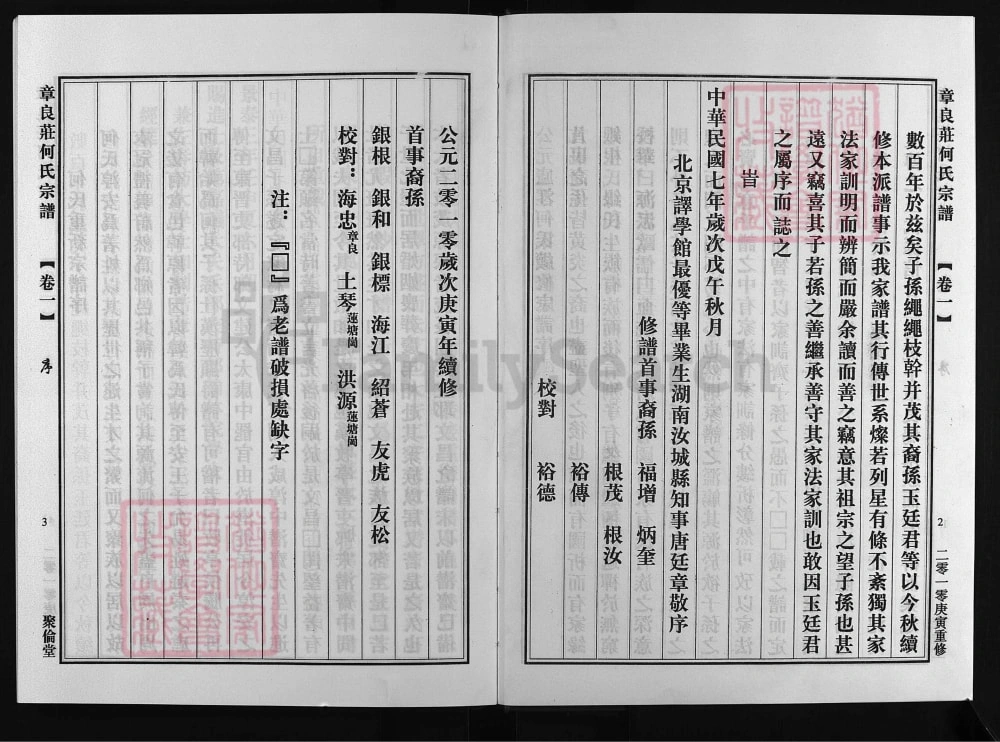 章良莊何氏宗譜 【卷一】 2 二零一零庚寅重修
數百年於兹矣子孫繩繩枝幹并茂其裔孫玉廷君等以今秋續
修本派譜事示我家譜其行傳世系燦若列星有條不紊獨其家
法家訓明而辨簡而嚴余讀而善之竊意其祖宗之望子孫也甚
遠又竊喜其子若孫之善繼承善守其家法家訓也敢因玉廷君
之屬序而誌之
旹
中華民國七年歲次戊午秋月
北京譯學館最優等畢業生湖南汝城縣知事唐廷章敬序
修譜首事裔孫 福增 炳奎
根茂 根汝
裕傳
校對 裕德
公元二零一零歲次庚寅年續修
首事裔孫
銀根 銀和 銀標 海江 紹蒼 友虎 友松
校對：海忠章良 土琴蓮塘崗 洪源蓮塘崗
注：『□□』爲老譜破損處缺字
章良莊何氏宗譜 【卷一】 序 3 聚倫堂
FamilySearch